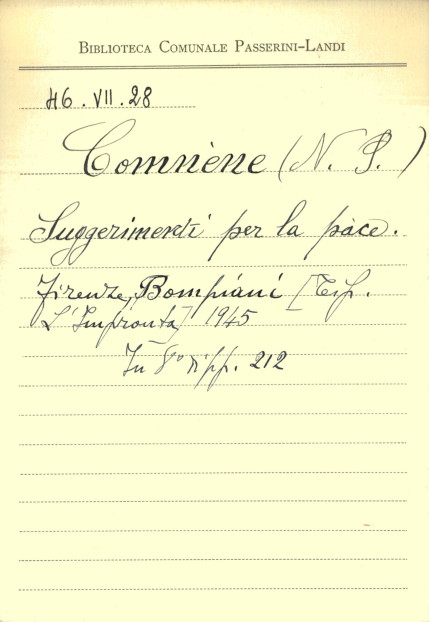 BIBLIOTECA COMUNALE PASSERINI-LANDI
46.VII.28
Comnène (N. P.)
Suggerimenti per la pace.
Firenze, Bompiani [Tip.
L'Impronta] 1945
In 8° pp. 212